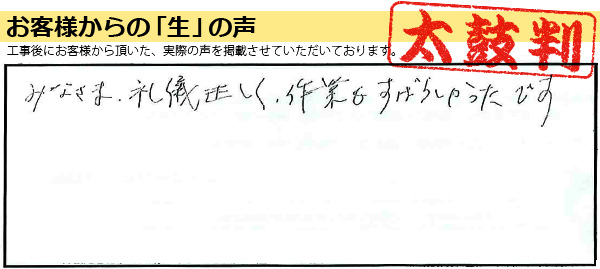 お客様からの「生」の声
工事後にお客様から頂いた、実際の声を掲載させていただいております。
太鼓判
みなさま、礼儀正しく、作業もすばらしかったです